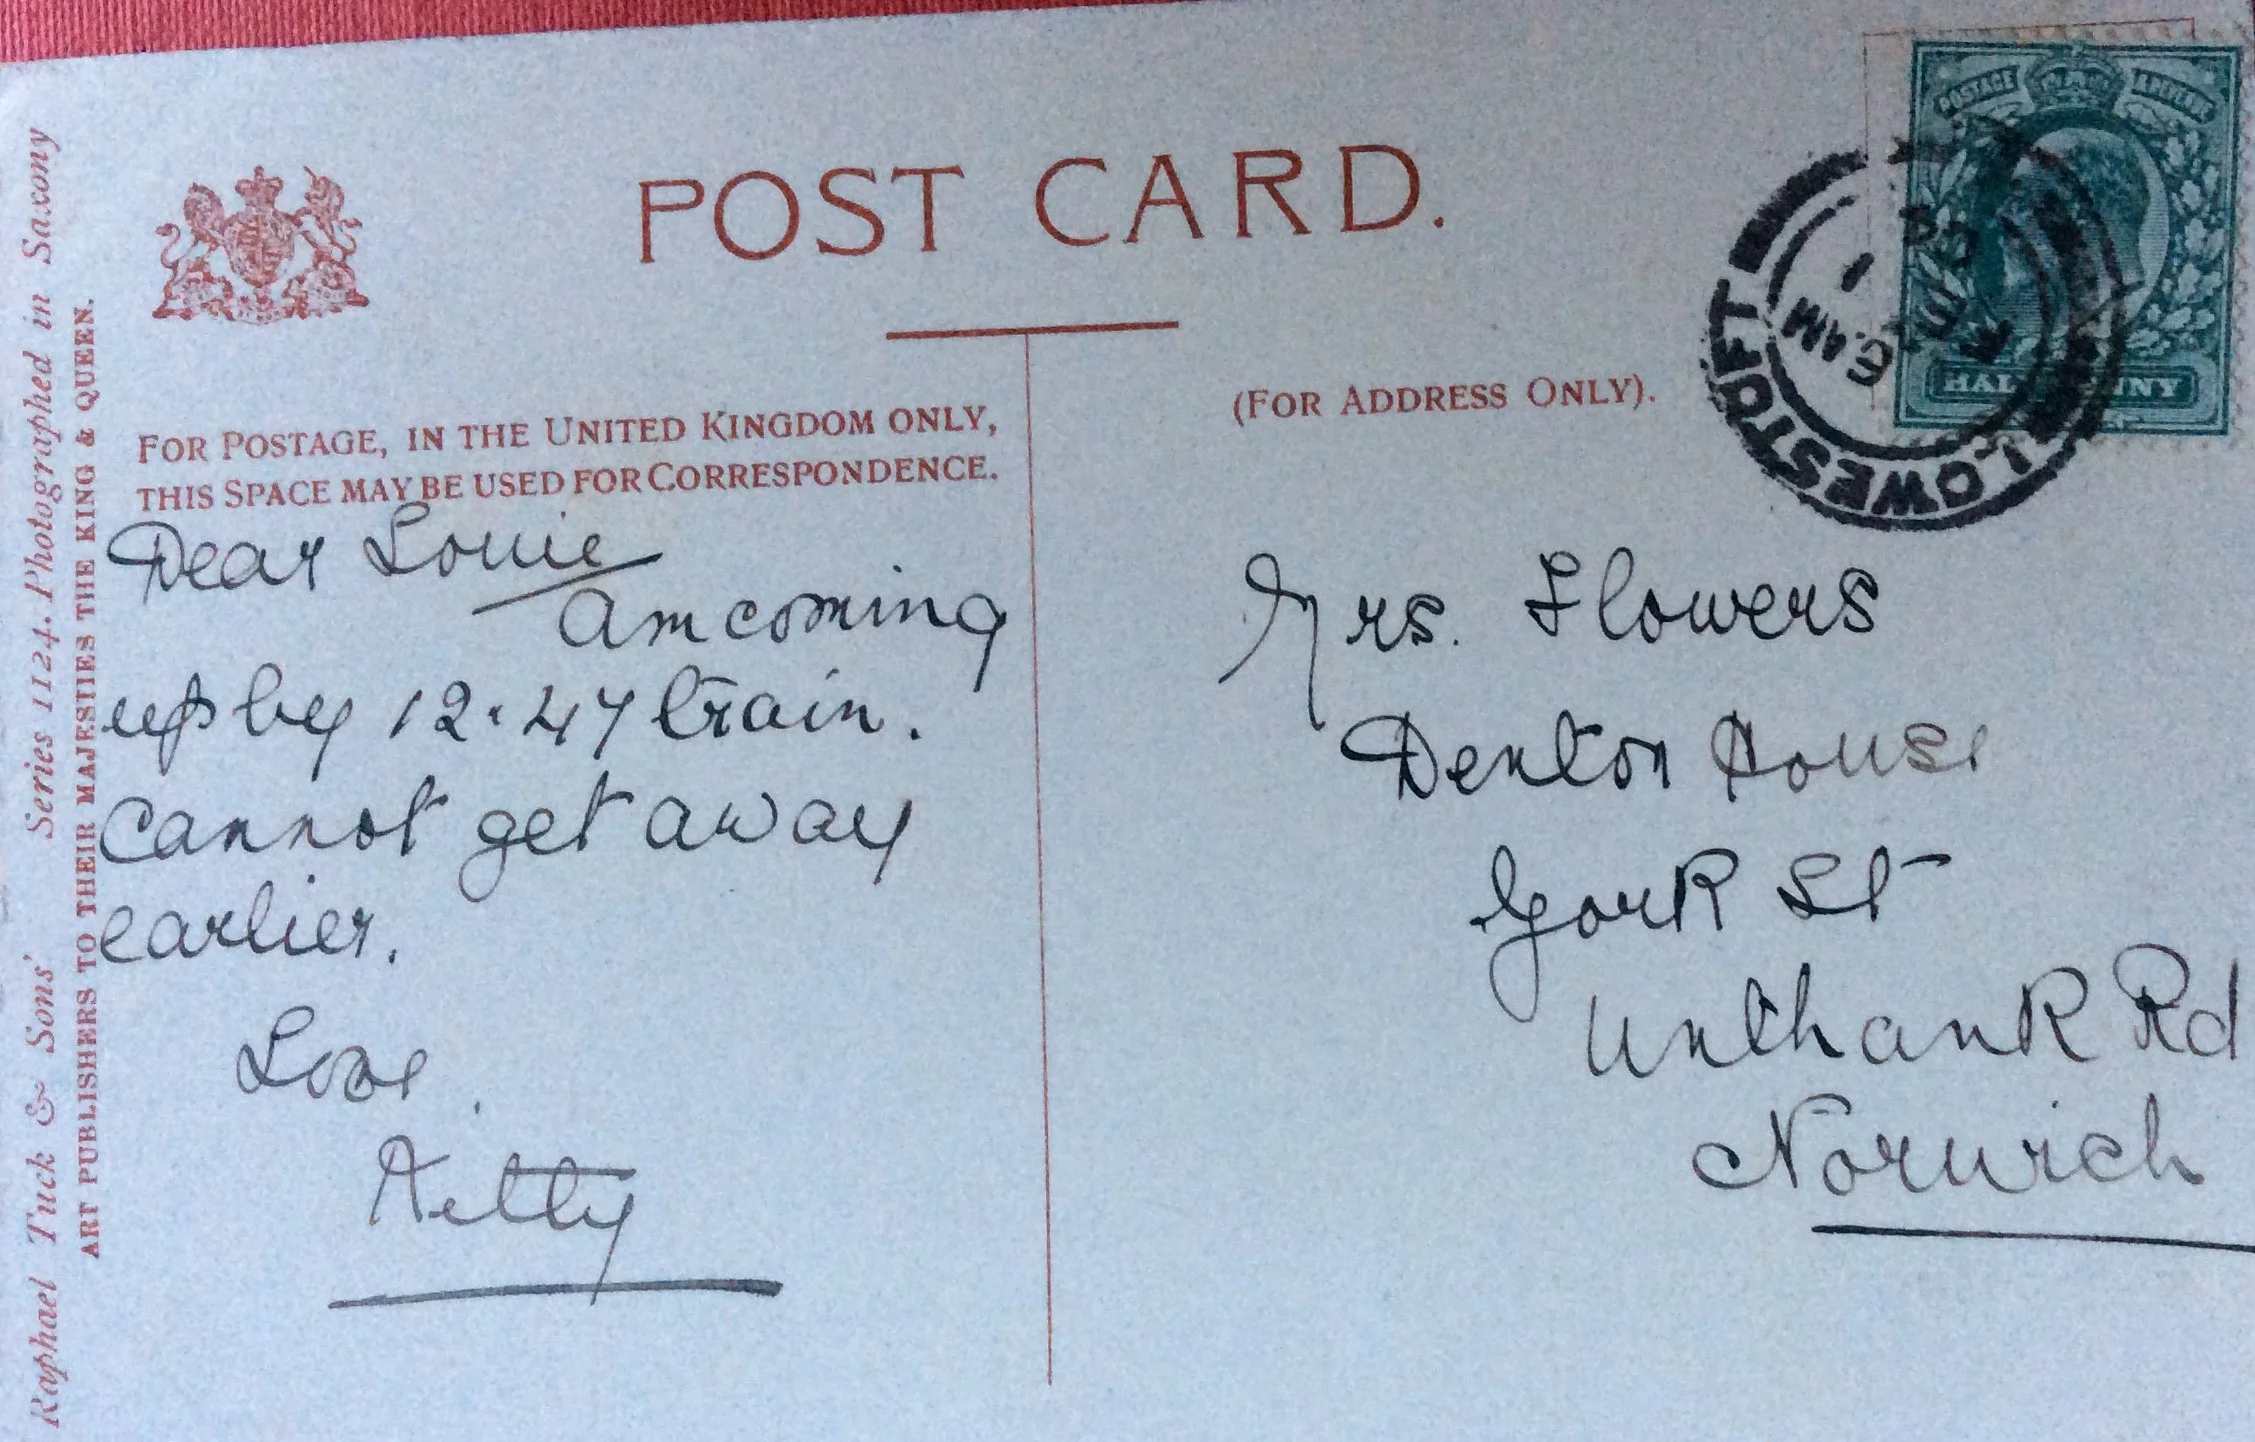 POST CARD.
FOR POSTAGE, IN THE UNITED KINGDOM ONLY,
THIS SPACE MAY BE USED FOR CORRESPONDENCE.
(FOR ADDRESS ONLY).
Dear Louie
am coming
up by 12.47 train.
cannot get away
earlier.
Love.
Kitty
Mrs. Flowers
Denton House
York St
Unthank Rd
Norwich
Raphael Tuck & Sons' Series 1124. Photographed in Saxony
ART PUBLISHERS TO THEIR MAJESTIES THE KING & QUEEN.
POSTAGE
HALFPENNY
LOWESTOFT
AM
1